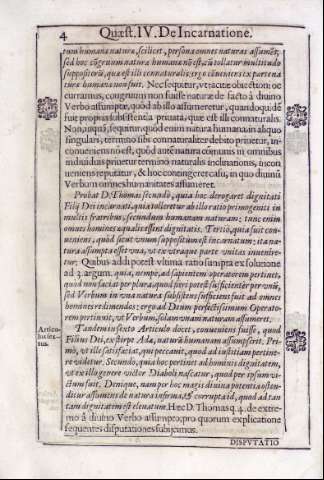 4 Quæst. IV. De Incarnatione.
tum humana natura, scilicet, persona omnes naturas assumēt;
sed hoc cōgruum natura humana nō est, cū tollatur multitudo
suppositorū, quæ est illi connaturalis; ergo cōueniens ex parte na
turæ humanæ non fuit. Nec sequitur, vt tacitæ obiectioni oc
curramus, congruum non fuisse naturæ de facto à diuino
Verbo assumptæ, quòd ab illo assumeretur, quandoquidē
fuit propria subsistentia priuata, quæ est illi connaturalis.
Non, inquā, sequitur, quòd enim natura humana in aliquo
singulari, termino sibi connaturaliter debito priuetur, in-
conueniens nō est, quòd autē natura cōmunis in omnibus
indiuiduis priuetur termino naturalis inclinationis, incon
ueniens reputatur, & hoc contingeret casu, in quo diuinū
Verbum omnes humanitates assumeret.
Probat D. Thomas secundò, quia hoc derogaret dignitati
Filij Dei incarnati, quia tolleretur ab illo ratio primogeniti in
multis fratribus, secundum humanam naturam; tunc enim
omnes homines æqualis essent dignitatis. Tertiò, quia fuit con-
ueniens, quòd sicut vnum suppositum est incarnatum; ita na-
tura assumpta esset vna, vt ex vtraque parte vnitas inuenire-
tur. Quibus addi potest vltima ratio sumpta ex solutione
ad 3. argum. quia, nempè, ad sapientem operatorem pertinet,
quòd non faciat per plura, quod fieri potest sufficienter per vnū,
sed Verbum in vna natura subsistens sufficiens fuit ad omnes
homines redimendos; ergo ad Deum perfectissimum Operato-
rem pertinuit, vt Verbum, solam vnam naturam assumeret.
Articu-
lus sex-
tus.
Tandem in sexto Articulo docet, conueniens fuisse, quod
Filius Dei, ex stirpe Adæ, naturā humanam assumpserit. Pri-
mò, vt ille satisfaciat, qui peccauit, quod ad iustitiam pertine-
re videtur. Secundò, quia hoc pertinet ad hominis dignitatem,
vt ex illo genere victor Diaboli nascatur, quod per ipsum vi-
ctum fuit. Denique, nam per hoc magis diuina potentia osten-
ditur assumens de natura infirma, & corrupta id, quod ad tan
tam dignitatem est eleuatum. Hæc D. Thomas q. 4. de extre-
mo à diuino Verbo assumpto, pro quorum explicatione
sequentes disputationes subijcimus.
DISPVTATIO